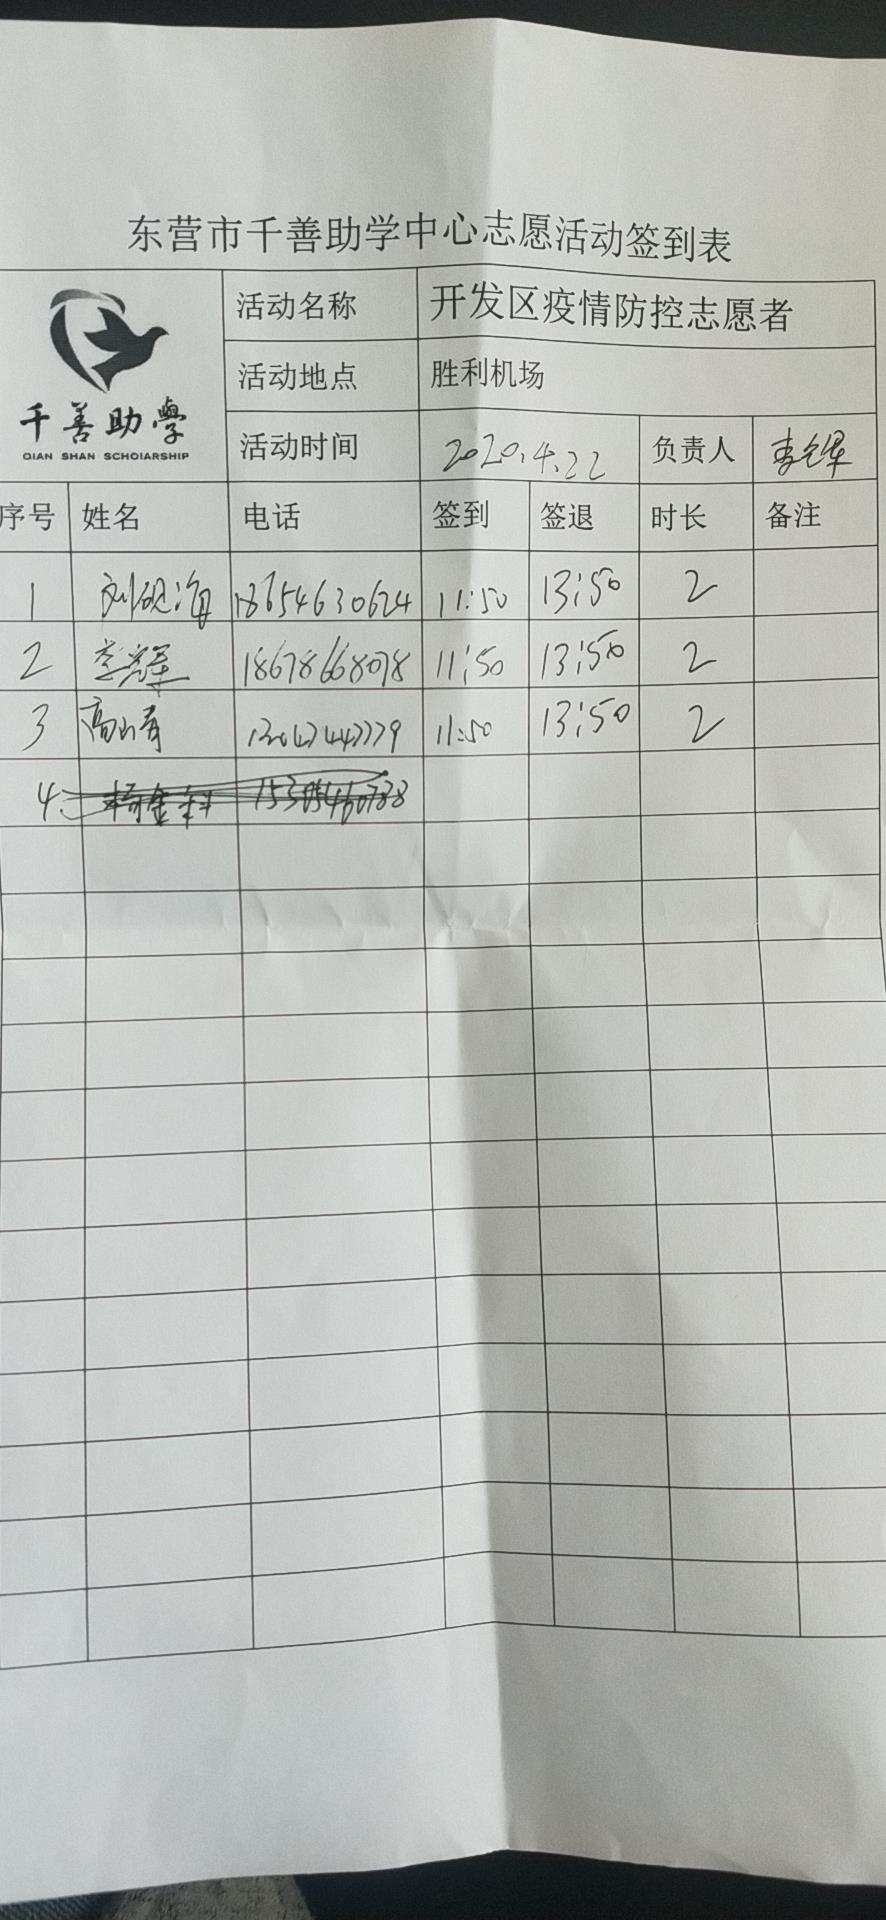 东营市千善助学中心志愿活动签到表
千善助學
QIAN SHAN SCHOIARSHIP
活动名称 开发区疫情防控志愿者
活动地点 胜利机场
活动时间 2020.4.22 负责人
序号 姓名 电话 签到 签退 时长 备注
1 刘砚海 18654630624 11:50 13:50 2
2 18678668078 11:50 13:50 2
3 高山青 11:50 13:50 2
4